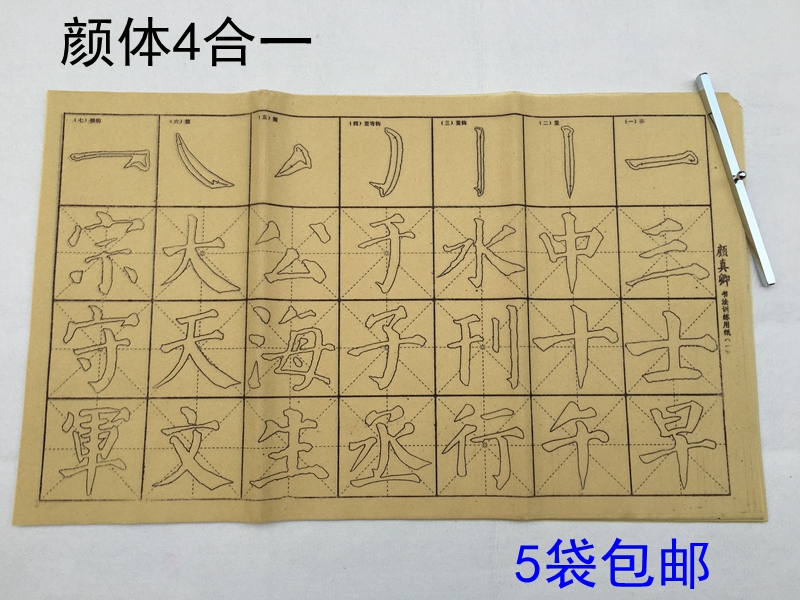 颜体4合一
顔真卿 书法训练用纸(一)
(一)
三士早
(二)
中十午
(三)
水刊行
(四)
于子丞
(五)
公海生
(六)
大天文
(七)横钩
宗守軍
5袋包邮